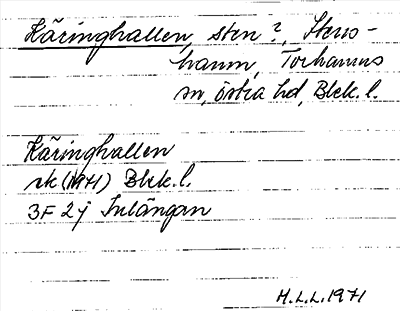 Käringhallen, sten?, Stens-
hamn, Torhamns
sn, östra hd, Blek. l.
Käringhallen
ek (1971) Blek. l.
3F 2j Inlängan
H.L.L. 1971